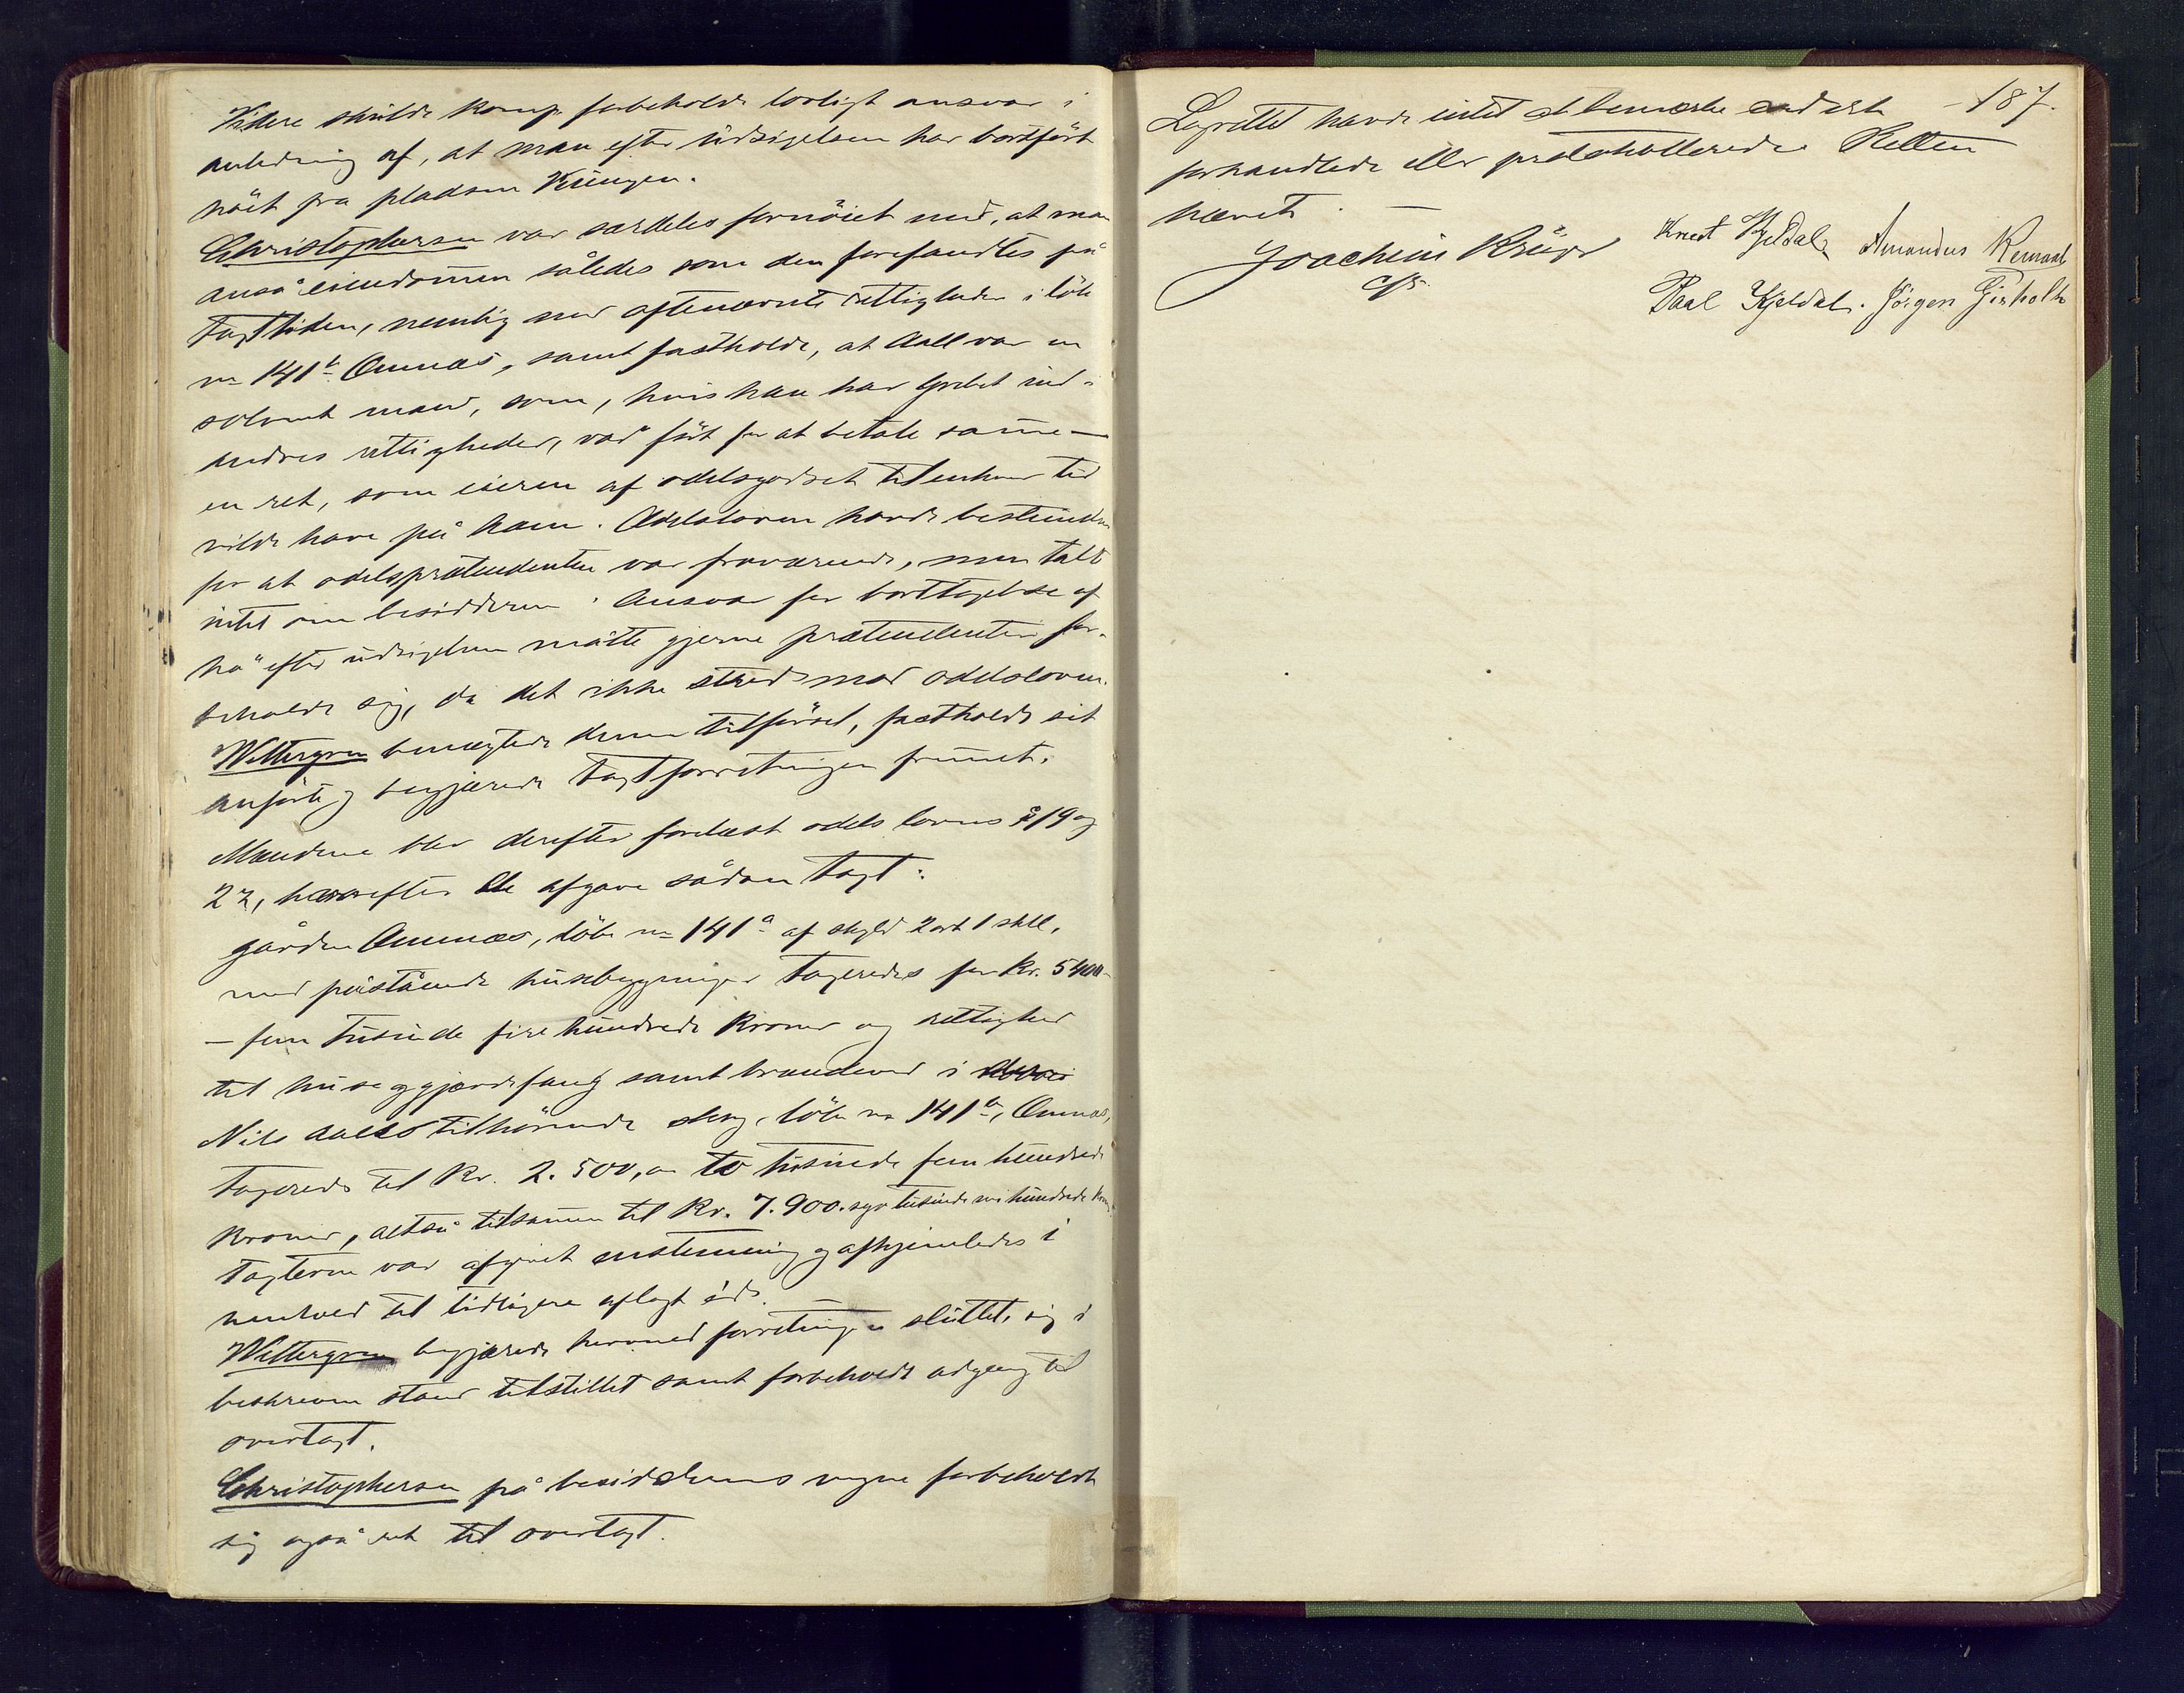 Videre skulde komp. forbeholde lovligt ansvar i
anledning af, at man efter udsigelsen har bortført
høet fra pladsen Kúngen.
Christophersen var særdeles fornøiet med, at man
anså eiendommen således som den forefandtes på
taxttiden, nemlig med oftenævnte rettigheder i løbe
no 141b Omnæs, samt fastholde, at Aall var en
solvent mand, som, hvis han har grebet ind i
andres rettigheder, var før for at betale samme —
en ret, som eieren af odelsgodset til enhver tid
vilde have på ham. Odelsloven havde bestemmelser
for at odelsprætendenten var fraværende, men talte
intet om besidderen. Ansvar for borttagelse af
hø efter udsigelsen måtte gjerne prætendenten for-
beholde sig, da det ikke stred mod odelsloven.
Wettergren benægtede denne tilførsel, fastholdt sit
anførte og begjærede taxtforretningen fremmet.
Mændene blev derefter forelæst odelslovens § 19 og
22, hvorefter de afgave sådan taxt:
gården Omnæs, løbe no 141a af skyld 2 ort 1 skll,
med påstående húsebygninger taxeredes for Kr. 5400
— fem túsinde fire húndrede kroner og rettighed
til húse og gjærdefang samt brændeved i
Nils Aalls tilhørende skog, løbe no 141b, Omnæs,
taxeredes til Kr. 2.500, to túsinde fem húndrede
kroner, altså tilsammen til Kr. 7.900. syv túsinde ni húndrede kroner
Taxterne var afgivet enstemmig og afhjemledes i
henhold til tidligere aflagt éd.
Wettergren begjærede hermed forretningen slúttet, sig i
beskreven stand tilstillet samt forbeholdt adgang til
overtaxt.
Christophersen på besidderens vegne forbeholdt
sig også ret til overtaxt.
187.
Lagrettet havde intet at bemærke ved det
forhandlede eller protokollerede. Retten
hævet. —
Joachim Krüger
cfs.
Knut Kjeldal. Amandus Remaal
Paal Kjeldal. Jörgen Gisholt